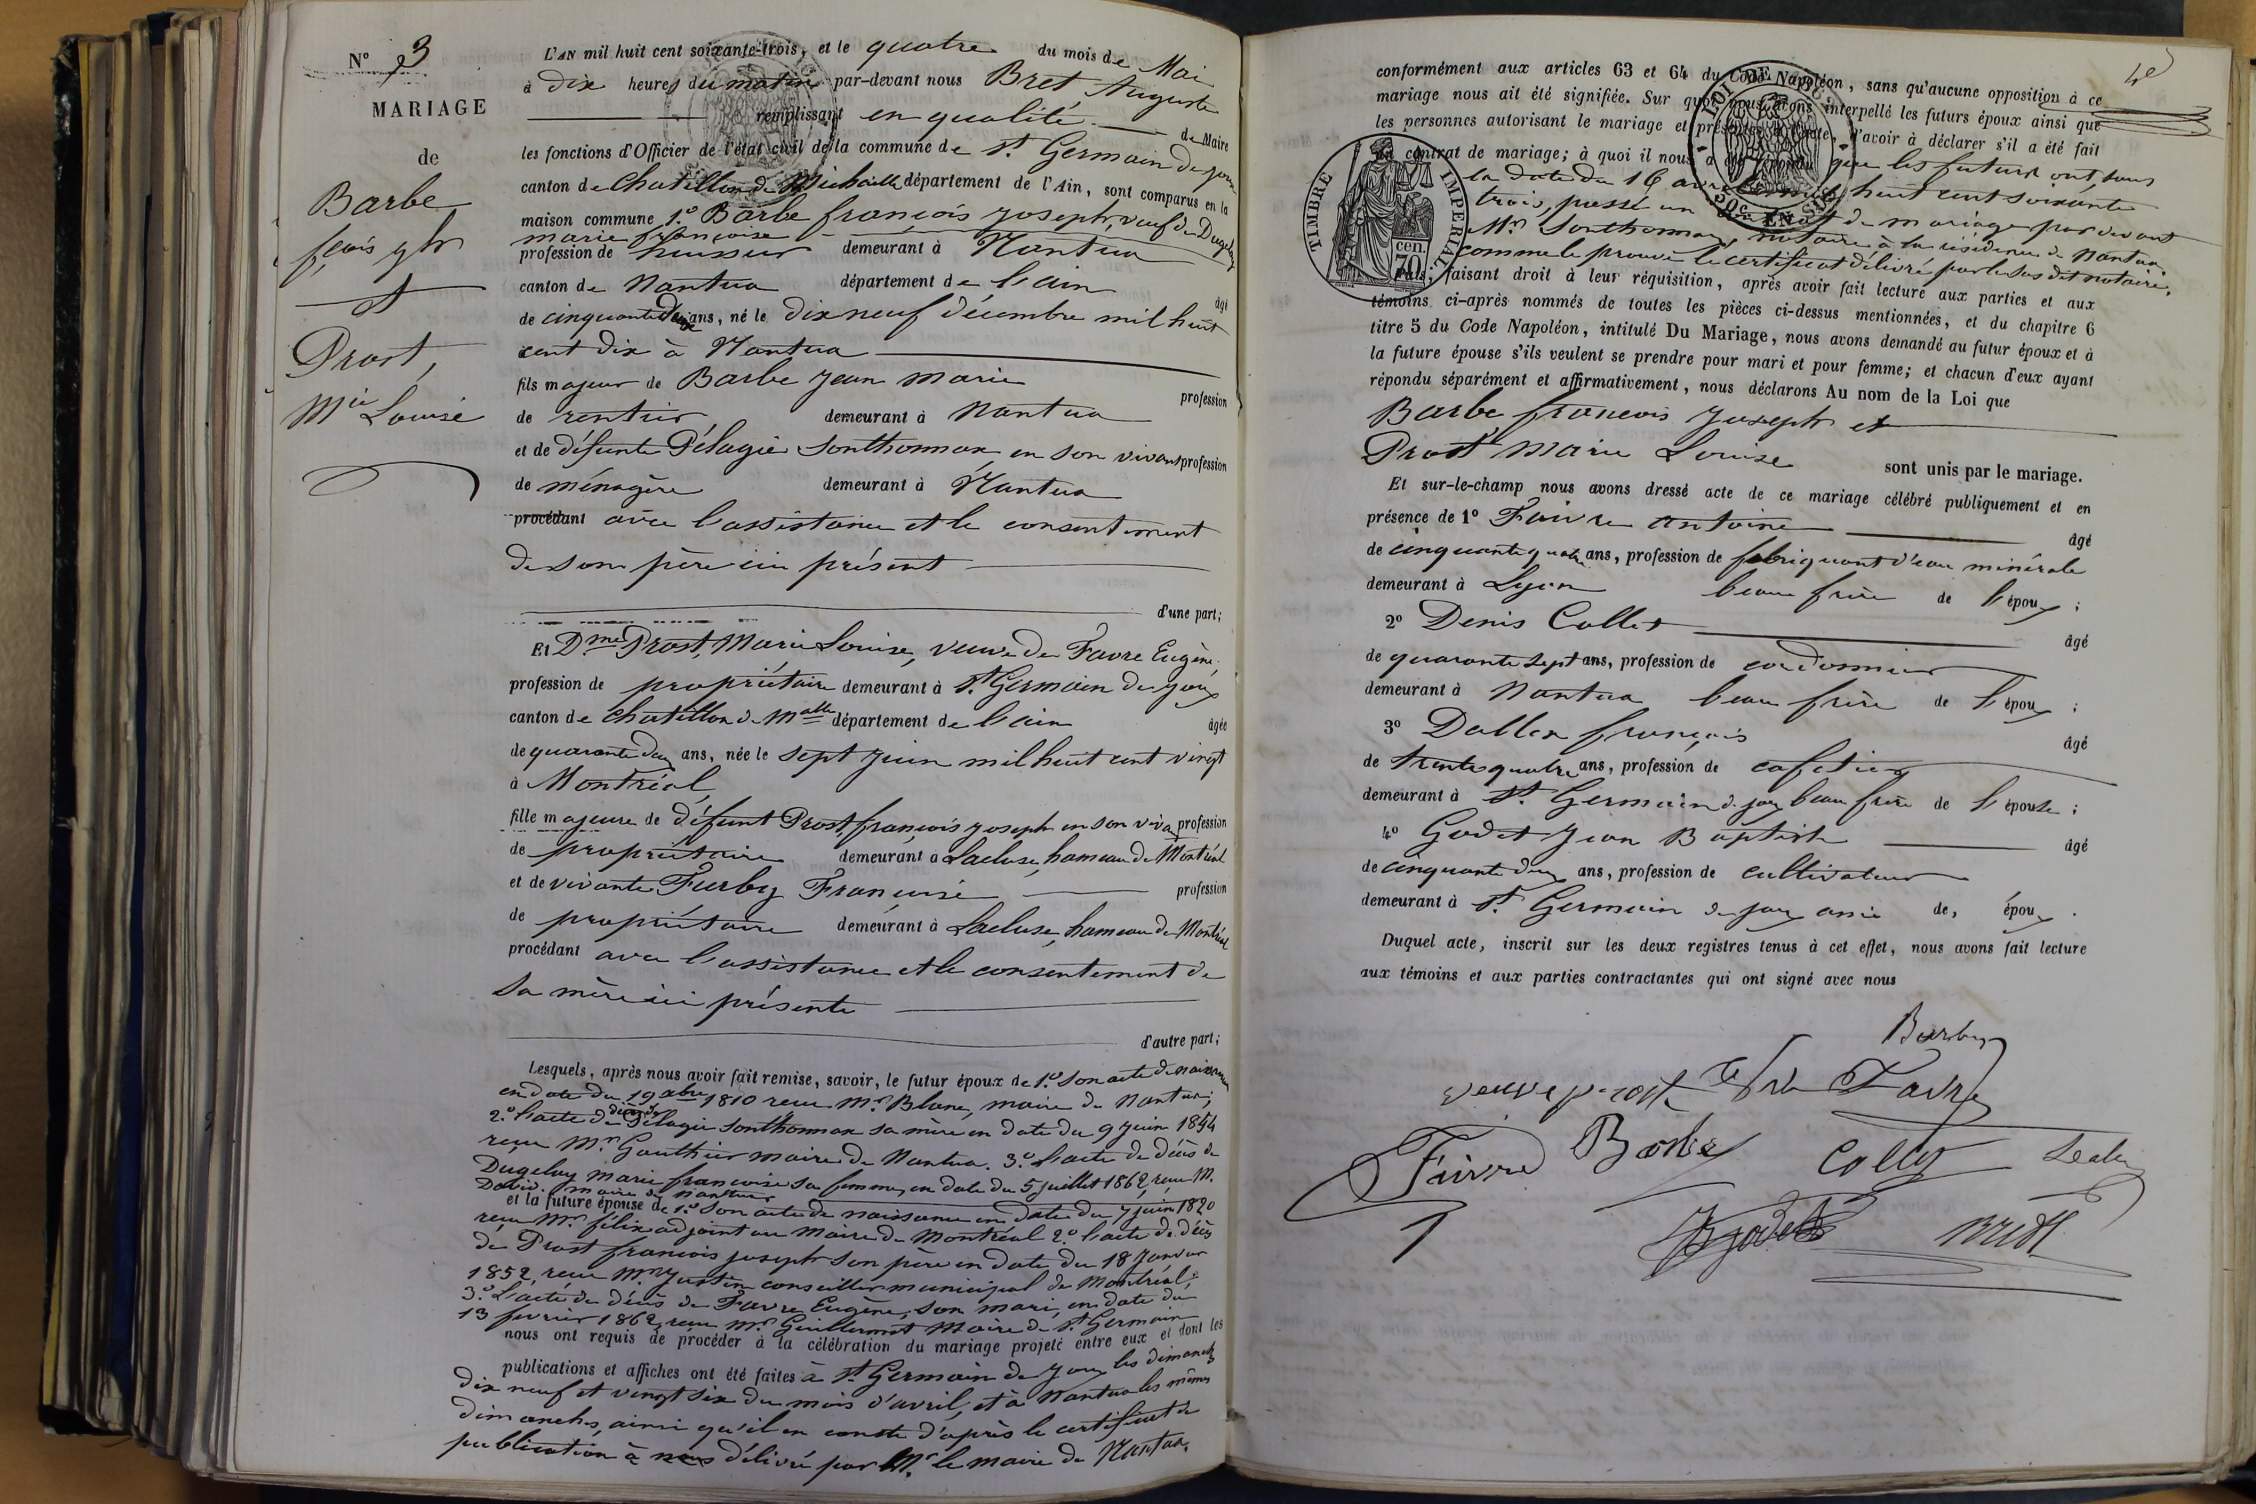 N° 3
MARIAGE
de
Barbe
fçois jph
et
Prost,
Mie Louise
L'AN mil huit cent soixante-trois, et le quatre du mois de Mai
à dix heures du matin par-devant nous Bret Auguste
remplissant en qualité de Maire
les fonctions d'Officier de l'état civil de la commune de St Germain de joux
canton de Chatillon de Michaille département de l'Ain, sont comparus en la
maison commune 1° Barbe françois joseph, veuf de Dugeley
marie françoise
profession de huissier demeurant à Nantua
canton de Nantua département de l'ain âgé
de cinquante deux ans, né le dix neuf décembre mil huit
cent dix à Nantua
fils majeur de Barbe jean marie profession
de rentier demeurant à Nantua
et de défunte Pélagie Sonthonnax en son vivant profession
de ménagère demeurant à Nantua
procédant avec l'assistance et le consentement
de son père ici présent
d'une part;
Et Dme Prost, Marie Louise, veuve de Favre Eugène
profession de propriétaire demeurant à St Germain de joux
canton de chatillon de Malle département de l'ain âgée
de quarante deux ans, née le sept juin mil huit cent vingt
à Montréal,
fille majeure de défunt Prost, françois joseph en son viva profession
de propriétaire demeurant à Lacluse, hameau de Montréal
et de vivante Furby Françoise profession
de propriétaire demeurant à Lacluse, hameau de Montréal
procédant avec l'assistance et le consentement de
sa mère ici présente
d'autre part;
Lesquels, après nous avoir fait remise, savoir, le futur époux de 1° son acte de naissance
en date du 19 xbre 1810 reçu Mr Blanc, maire de Nantua;
2° l'acte de décès de Pélagie Sonthonnax sa mère en date du 9 juin 1844
reçu Mr Gauthier maire de Nantua. 3° l'acte de décès de
Dugeley marie françoise sa femme, en date du 5 juillet 1862, reçu M.
David. maire de Nantua
et la future épouse de 1° son acte de naissance en date du 7 juin 1820
reçu Mr félix adjoint au Maire de Montréal 2° l'acte de décès
de Prost françois joseph son père en date du 18 Janvier
1852, reçu Mr Justin conseiller municipal de Montréal;
3° l'acte de décès de Favre Eugène, son mari, en date du
13 février 1862, reçu Mr Guillermet Maire de St Germain
nous ont requis de procéder à la célébration du mariage projeté entre eux et dont les
publications et affiches ont été faites à St Germain de joux les dimanches
dix neuf et vingt six du mois d'avril, et à Nantua les mêmes
dimanches, ainsi qu'il en conste d'après le certificat de
publication à nous délivré par Mr le maire de Nantua.
4e
conformément aux articles 63 et 64 du Code Napoléon, sans qu'aucune opposition à ce
mariage nous ait été signifiée. Sur quoi nous avons interpellé les futurs époux ainsi que
les personnes autorisant le mariage et présentes à l'acte, d'avoir à déclarer s'il a été fait
un contrat de mariage; à quoi il nous a été répondu que les futurs ont, sous
la date du 16 avril mil huit cent soixante
trois, passé un contrat de mariage par devant
Mr Sonthonnax, notaire à la résidence de Nantua,
comme le prouve le certificat délivré par le sus dit notaire.
TIMBRE IMPERIAL
cen. 70
Puis, faisant droit à leur réquisition, après avoir fait lecture aux parties et aux
témoins ci-après nommés de toutes les pièces ci-dessus mentionnées, et du chapitre 6
titre 5 du Code Napoléon, intitulé Du Mariage, nous avons demandé au futur époux et à
la future épouse s'ils veulent se prendre pour mari et pour femme; et chacun d'eux ayant
répondu séparément et affirmativement, nous déclarons Au nom de la Loi que
Barbe francois joseph et
Prost Marie Louise sont unis par le mariage.
Et sur-le-champ nous avons dressé acte de ce mariage célébré publiquement et en
présence de 1° Faivre antoine âgé
de cinquante quatre ans, profession de fabriquant d'eau minérale
demeurant à Lyon beau frère de l'époux;
2° Denis Collet âgé
de quarante sept ans, profession de cordonnier
demeurant à Nantua beau frère de l'époux;
3° Dallex françois âgé
de trente quatre ans, profession de cafetier
demeurant à St Germain de joux beau frère de l'épouse;
4° Godet Jean Baptiste âgé
de cinquante deux ans, profession de cultivateur
demeurant à St Germain de joux ami de, époux.
Duquel acte, inscrit sur les deux registres tenus à cet effet, nous avons fait lecture
aux témoins et aux parties contractantes qui ont signé avec nous
Barbe
veuve prost Favre
Faivre Barbe Collet
Godet Bret